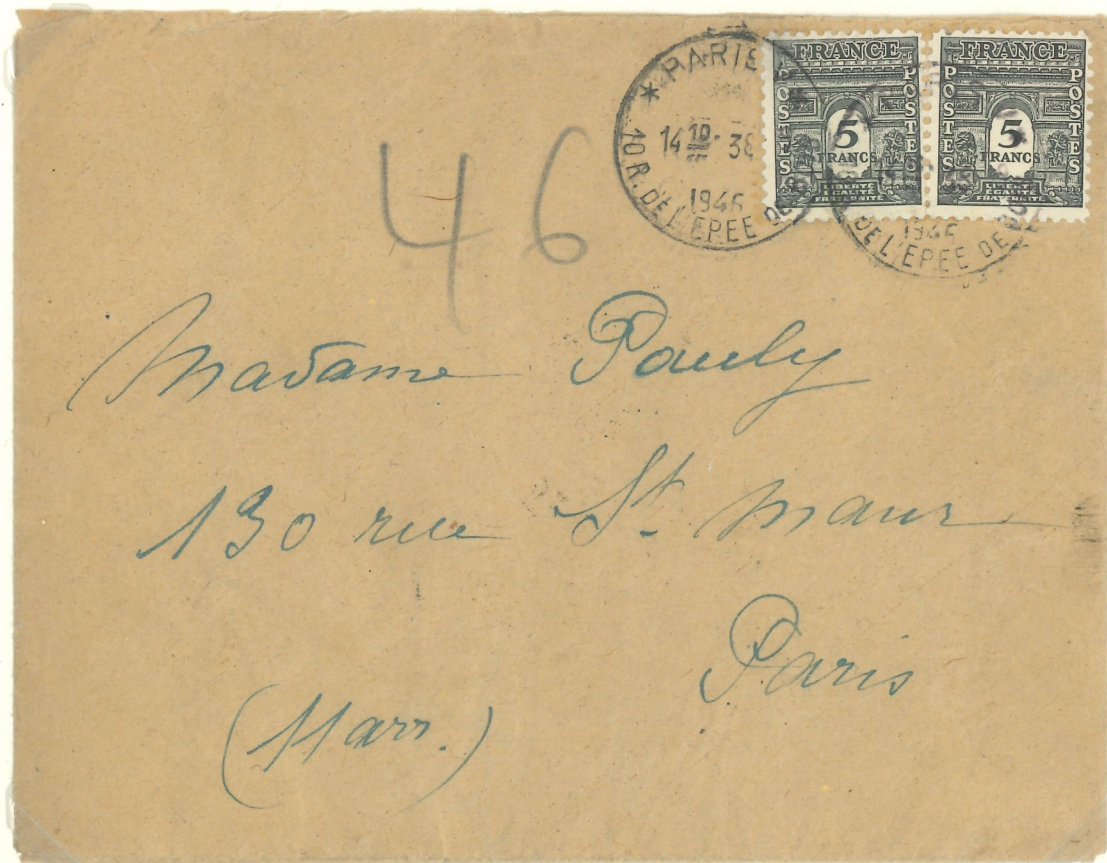 * PARIS
14 10 38
1946
10 R. DE L'EPEE DE
FRANCE
POSTES
POSTES
5
FRANCS
LIBERTÉ
ÉGALITÉ
FRATERNITÉ
FRANCE
POSTES
POSTES
5
FRANCS
LIBERTÉ
ÉGALITÉ
FRATERNITÉ
1946
DE L'EPEE DE
46
Madame Pauly
130 rue St. Maur
Paris
(11 arr.)